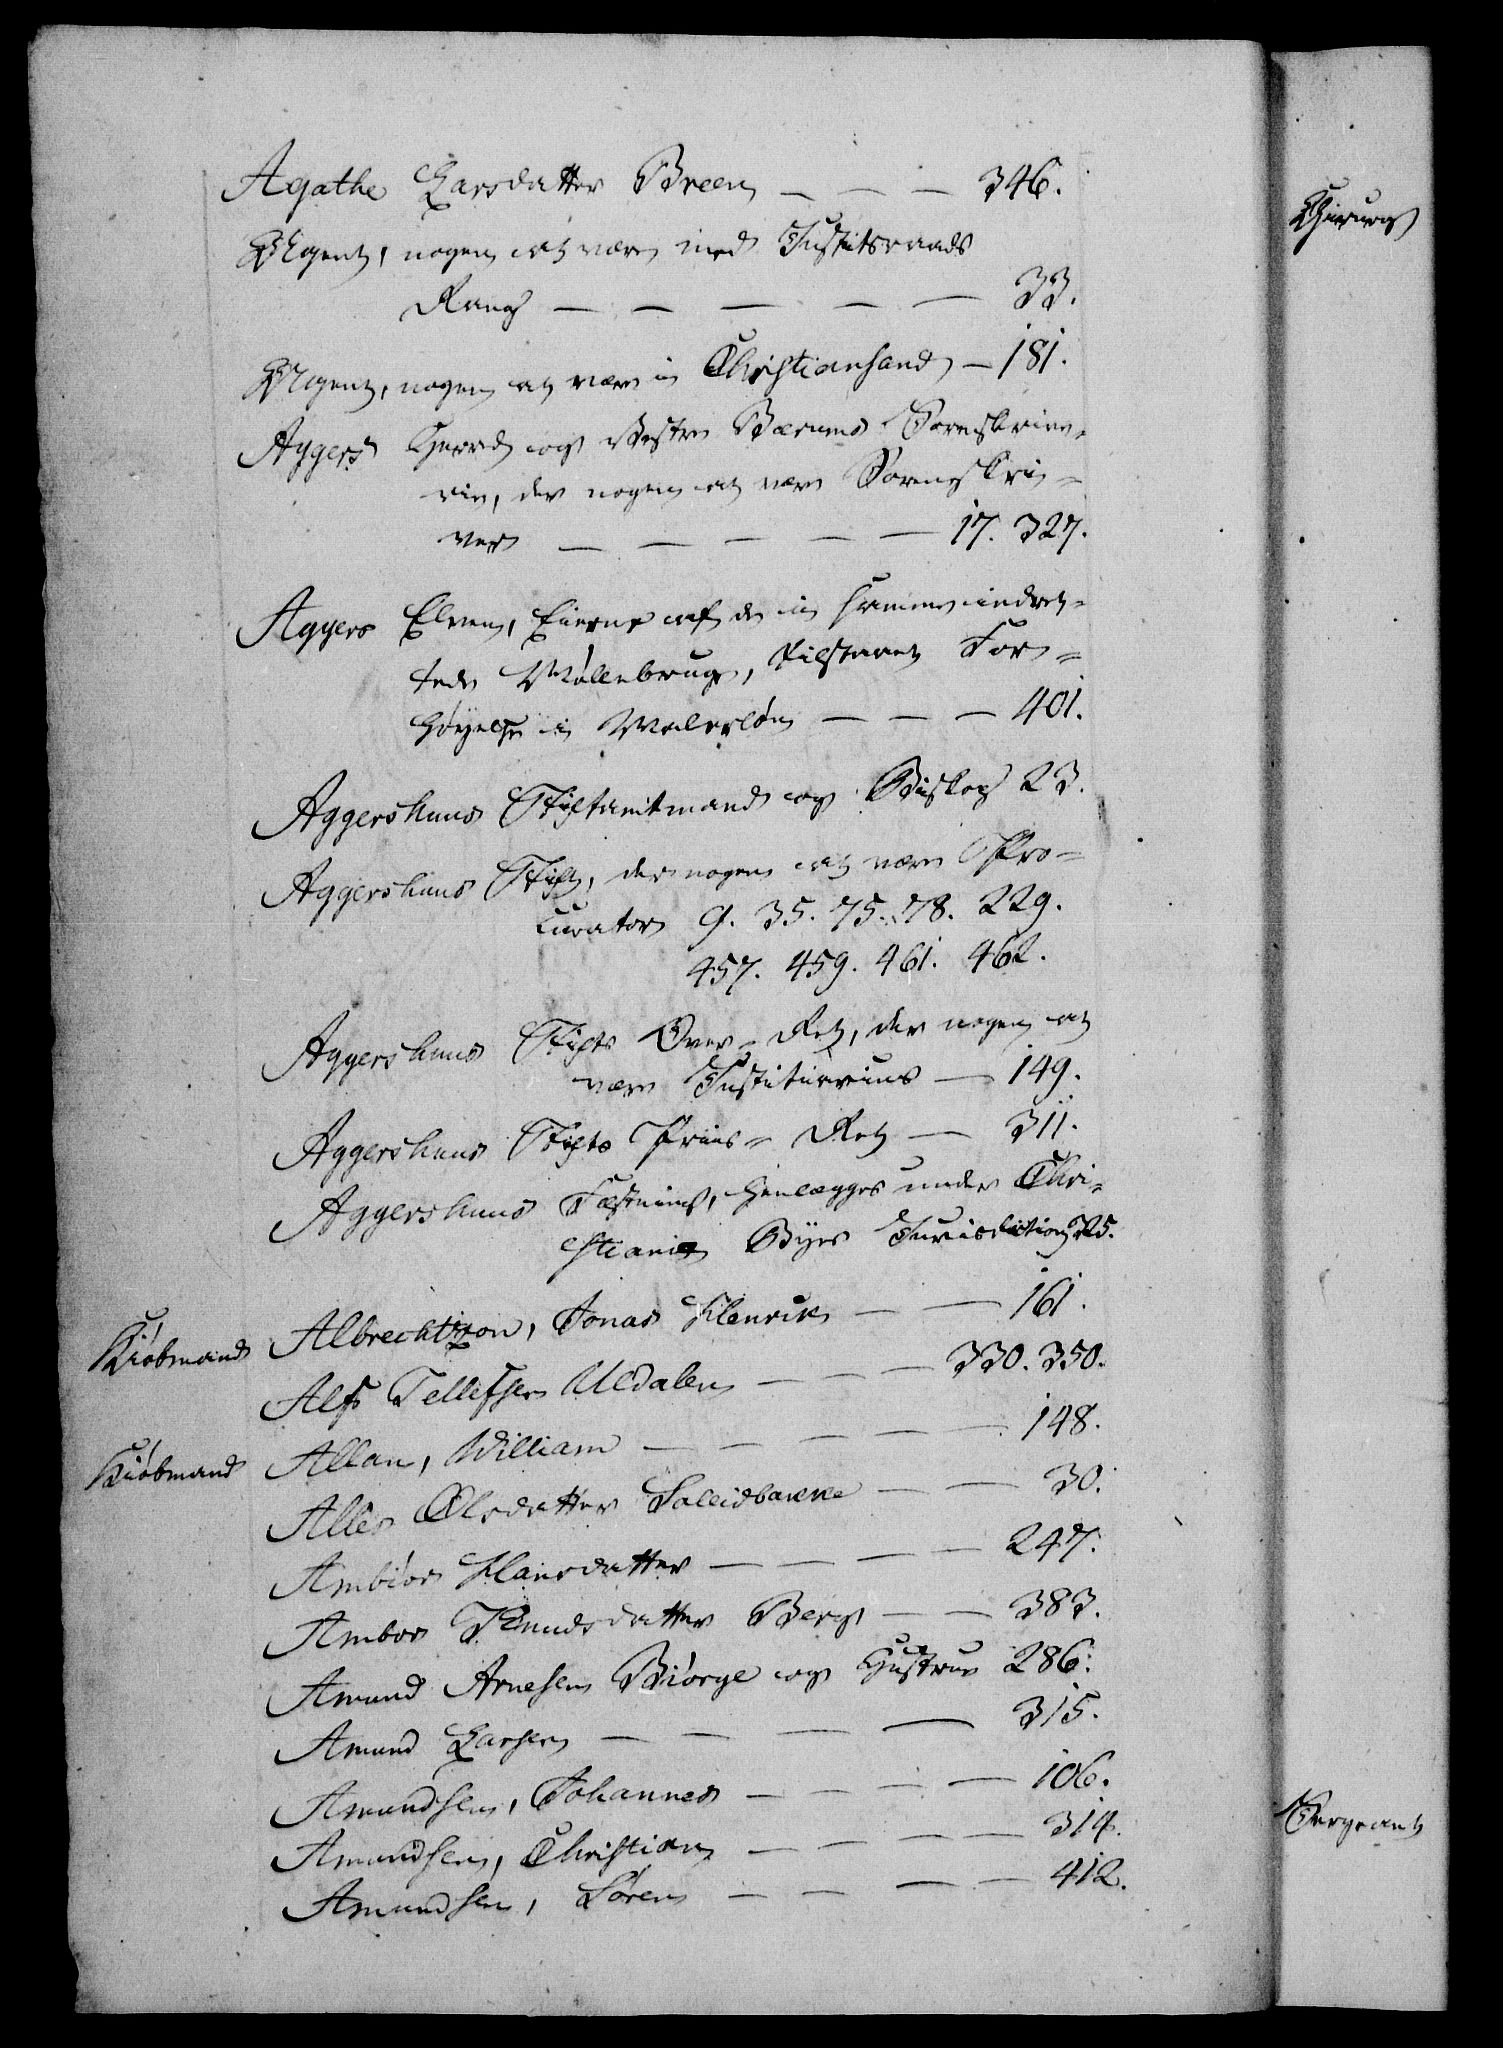 Agathe Larsdatter Breen — — — 346.
Agent, nogen at være med Justitsraads
Rang — — — — — 33.
Agent, nogen at være i Christiansand — 181.
Aggers Herred og Vestre Bærums Sorenskrive-
rie, der nogen at være Sorenskri-
ver — — — — — 17. 327.
Aggers Elven, Eierne af de i samme indret-
tede Møllebrug, tilstaaet For-
høyelse i Malerløn — — — 401.
Aggershuus Stiftamtmand og Biskop 23.
Aggershuus Stift, der nogen at være Pro-
curator 9. 35. 75. 78. 229.
457. 459. 461. 462.
Aggershuus Stifts Over-Ret, der nogen at
være Justitiarius — 149.
Aggershuus Stifts Priis-Ret — 311.
Aggershuus Fæstning, henlægges under Chri-
stiania Byes Jurisdiction 325.
Kiøbmand Albrechtzon, Jonas Henrick — — 161.
Alf Tellefsen Uldalen — — — 330. 350.
Kiøbmand Allan, William — — — — — 148.
Alles Olsdatter — — 30.
Ambiør Hansdatter — — — — 247.
Ambor Knudsdatter Berg — — 383.
Amund Arnesen Biørge og Hustrue 286.
Amund Larsen — — — — 315.
Amundsen, Johannes — — — — 106.
Amundsen, Christian — — — — 314.
Amundsen, Søren — — — — 412.
Chirurg
Sergeant